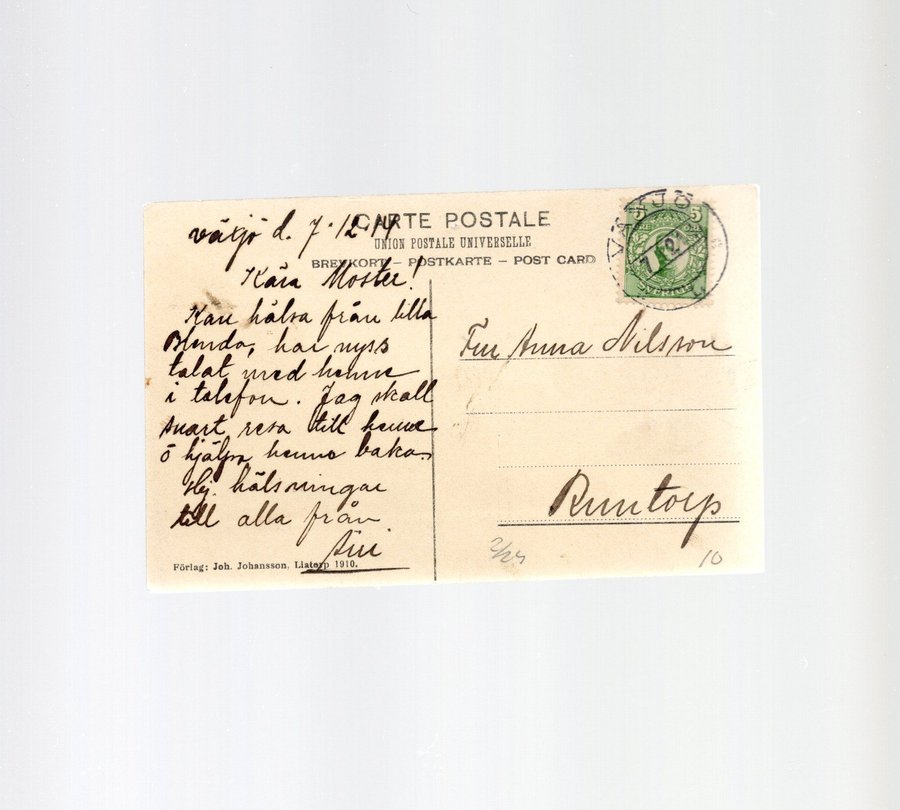 växjö d. 7.12.14
CARTE POSTALE
UNION POSTALE UNIVERSELLE
BREVKORT – POSTKARTE – POST CARD
Kära Moster!
Kan hälsa från lilla
Blenda, har nyss
talat med henne
i telefon. Jag skall
snart resa till henne
ö hjälpa henne baka.
Hj. hälsningar
till alla från
Siri
Förlag: Joh. Johansson, Liatorp 1910.
VÄXJÖ
5 5
SVERIGE
Fru Anna Nilsson
Runtorp
10